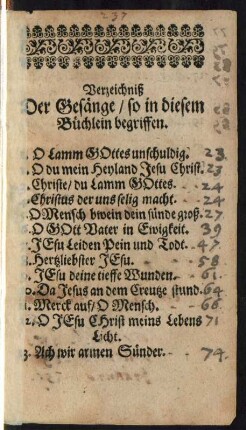 Verzeichniß
Der Gesänge / so in diesem
Büchlein begriffen.
. O Lamm GOttes unschuldig. 23
. O du mein Heyland Jesu Christ. 23
. Christe / du Lamm GOttes. 24
. Christus der uns selig macht. 24
. O Mensch bwein dein sünde groß. 27
. O GOtt Vater in Ewigkeit. 39
. JEsu Leiden Pein und Todt. 47
. Hertzliebster JEsu. 58
. JEsu deine tieffe Wunden. 61
0. Da Jesus an dem Creutze stund. 64
1. Merck auf / O Mensch. 66
2. O JEsu CHrist meins Lebens 71
Licht.
3. Ach wir armen Sünder. 74